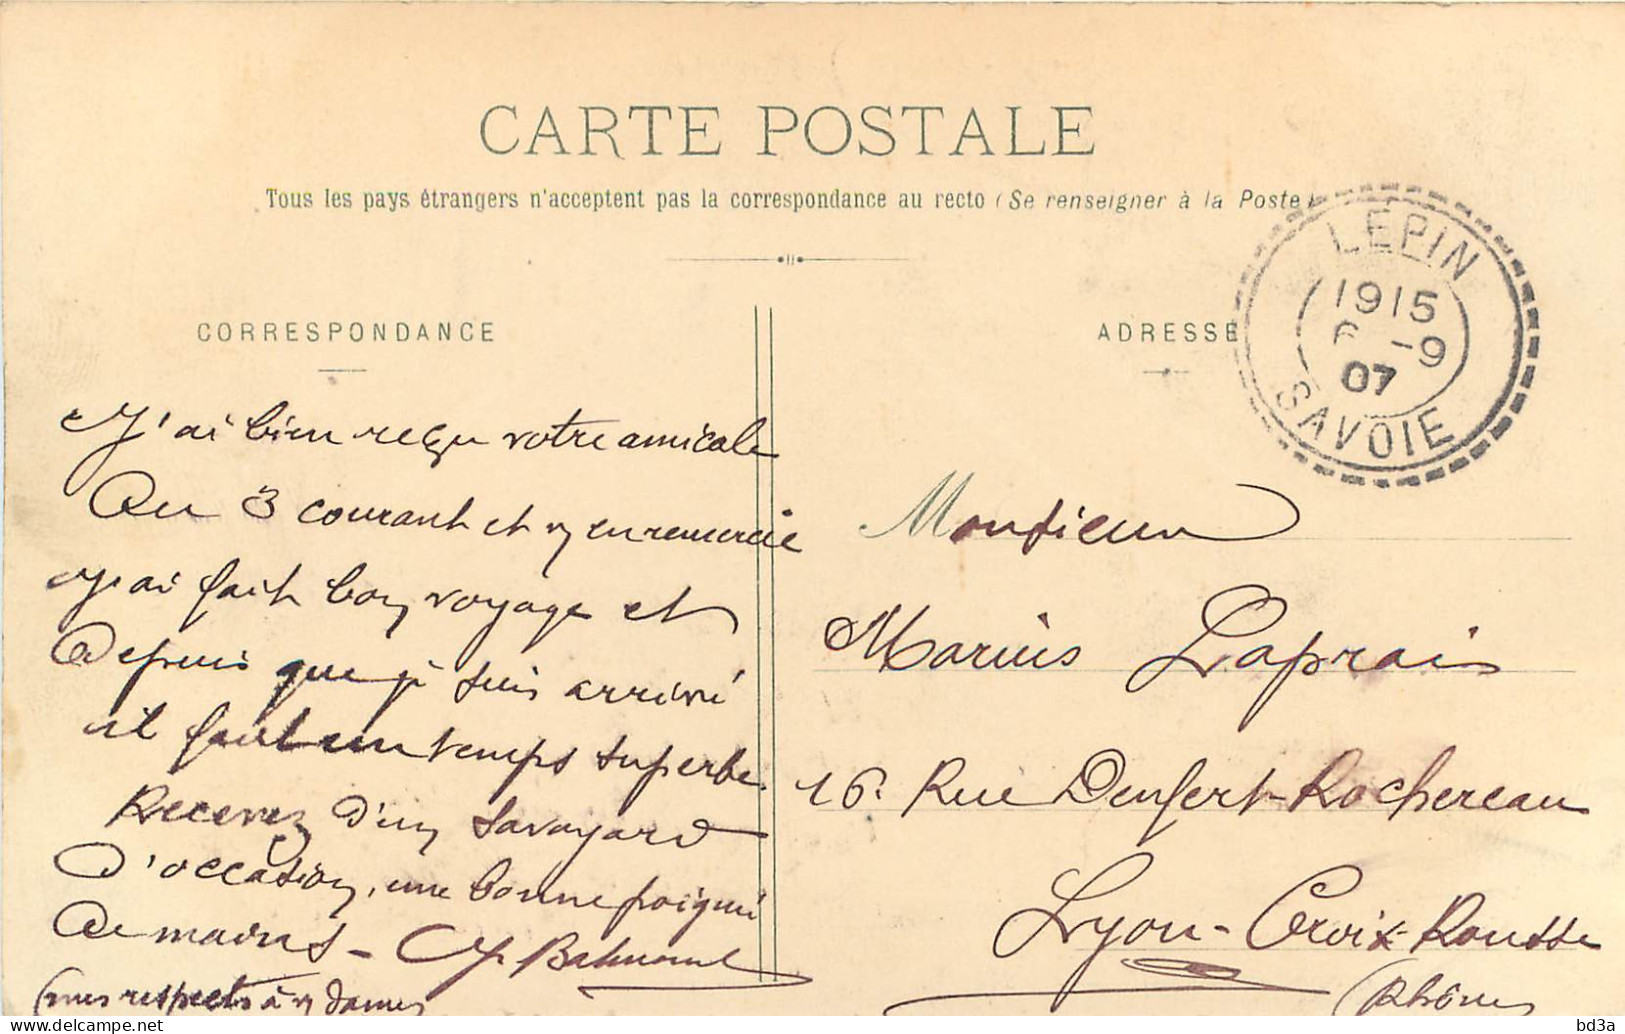 CARTE POSTALE
Tous les pays étrangers n'acceptent pas la correspondance au recto (Se renseigner à la Poste)
LÉPIN
1915
6 -9
07
SAVOIE
CORRESPONDANCE
ADRESSE
J'ai bien reçu votre amicale
Du 3 courant et v/ en remercie
J'ai fait bon voyage et
Depuis que je suis arrivé
il fait un temps superbe.
Recevez d'un Savoyard
D'occasion, une bonne poignée
de mains –
(mes respects à v/ dames
Monsieur
Marius Laprais
16. Rue Denfert-Rochereau
Lyon - Croix-Rousse
(Rhône
bd3a